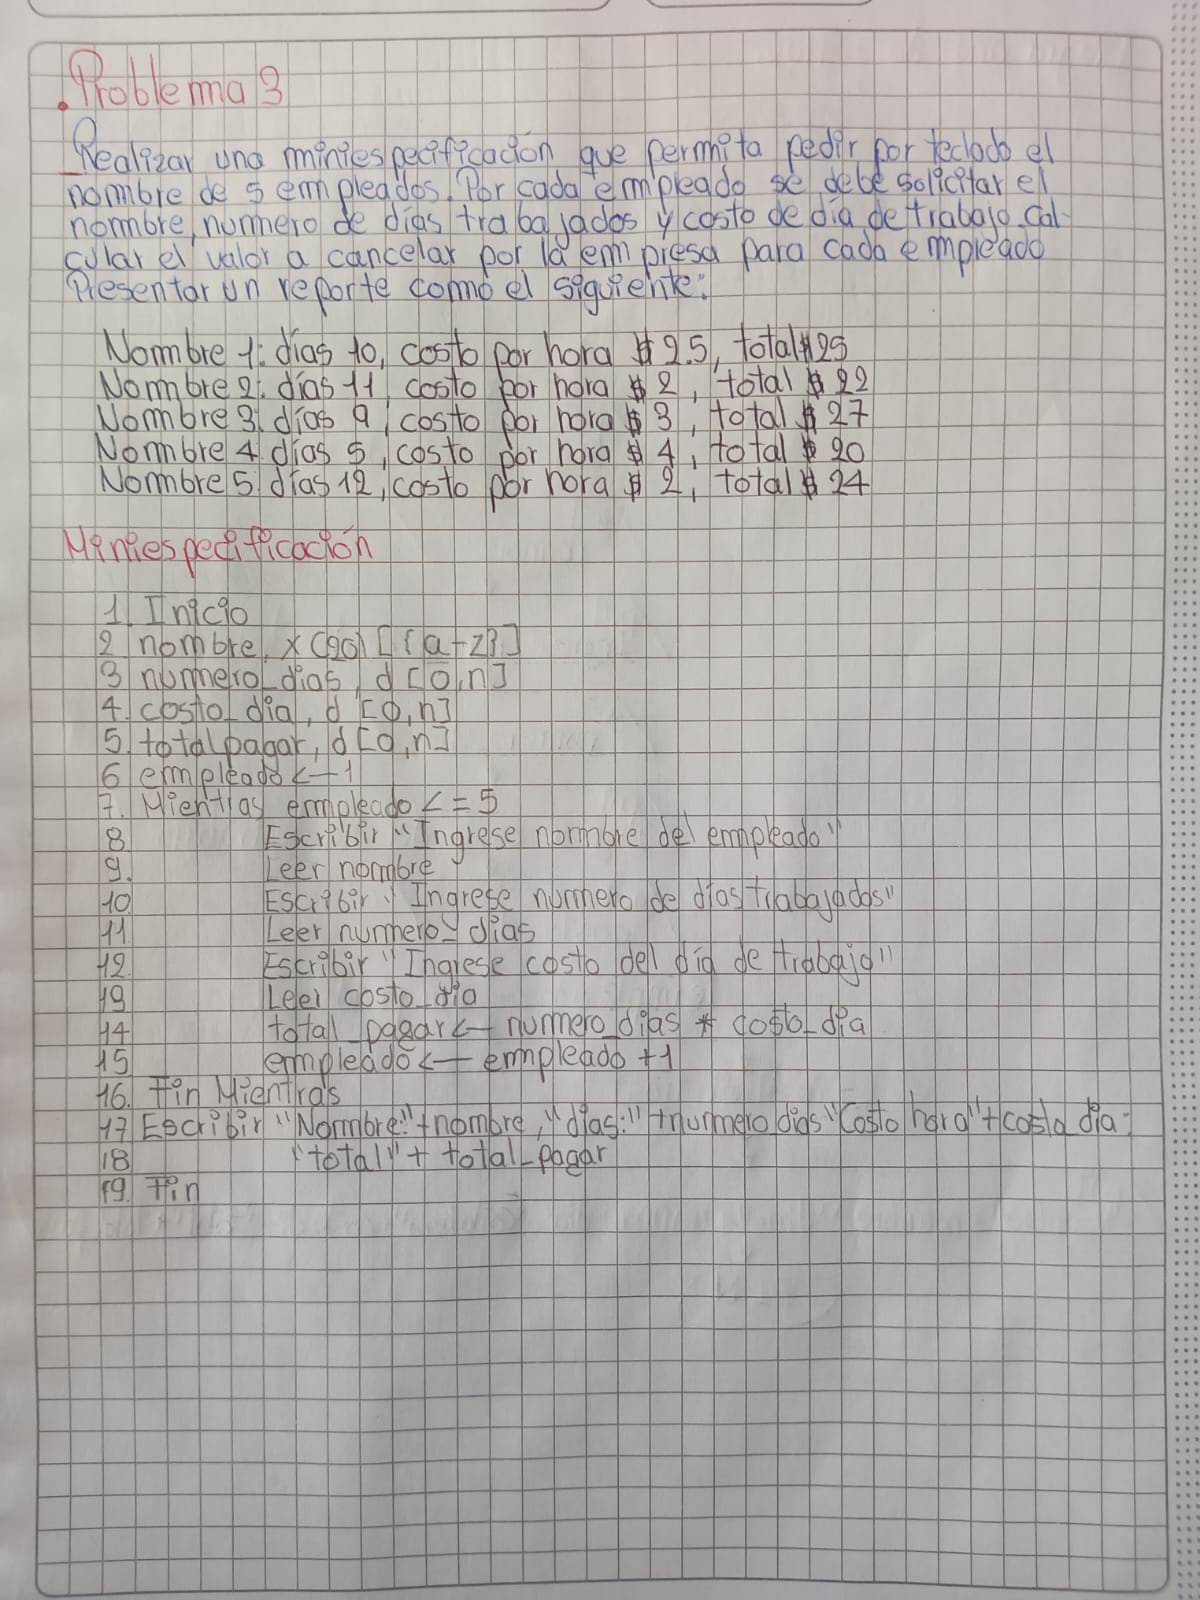 . Problema 3
Realizar una miniespecificación que permita pedir por teclado el
nombre de 5 empleados. Por cada empleado se debe solicitar el
nombre, numero de días trabajados y costo de día de trabajo. Cal-
cular el valor a cancelar por la empresa para cada empleado
Presentar un reporte como el siguiente:
Nombre 1: días 10, costo por hora $ 2.5, total $ 25
Nombre 2: días 11, costo por hora $ 2, total $ 22
Nombre 3: días 9, costo por hora $ 3, total $ 27
Nombre 4: días 5, costo por hora $ 4, total $ 20
Nombre 5: días 12, costo por hora $ 2, total $ 24
Miniespecificación
1. Inicio
2 nombre, x(20) [{a-z}]
3 numero_dias, d [0,n]
4. costo_dia, d [0,n]
5. total pagar, d [0,n]
6 empleado <- 1
7. Mientras empleado <= 5
8. Escribir "Ingrese nombre del empleado"
9. Leer nombre
10. Escribir "Ingrese numero de días trabajados"
11 Leer numero_dias
12. Escribir "Ingrese costo del día de trabajo"
13 Leer costo_dia
14 total_pagar <- numero_dias * costo_dia
15 empleado <- empleado + 1
16. Fin Mientras
17 Escribir "Nombre:" + nombre, "días:" + numero dias "Costo hora" + costo dia:
18 "total" + total_pagar
19. Fin